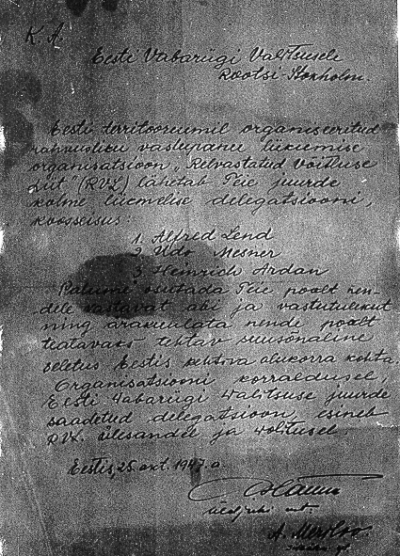 K. A.
Eesti Vabariigi Valitsusele
Rootsi Stokholm.
Eesti territooriumil organiseeritud
rahvusliku vastupanu liikumise
organisatsioon „Relvastatud Võitluse
Liit" (RVL) lähetab Teie juurde
kolme liikmelise delegatsiooni,
koosseisus:
1. Alfred Lend
2. Udo Mesner
3. Heinrich Ardan
Palume osutada Teie poolt nen-
dele vastavat abi ja vastutulekut
ning ärakuulata nende poolt
teatavaks tehtav suusonaline
seletus Eestis kehtiva olukorra kohta.
Organisatsiooni korraldusel,
Eesti Vabariigi Valitsuse juurde
saadetud delegatsioon, esineb
RVL. ülesandel ja volitusel.
Eestis, 25 okt. 1947. a.
üldjuhi
A.